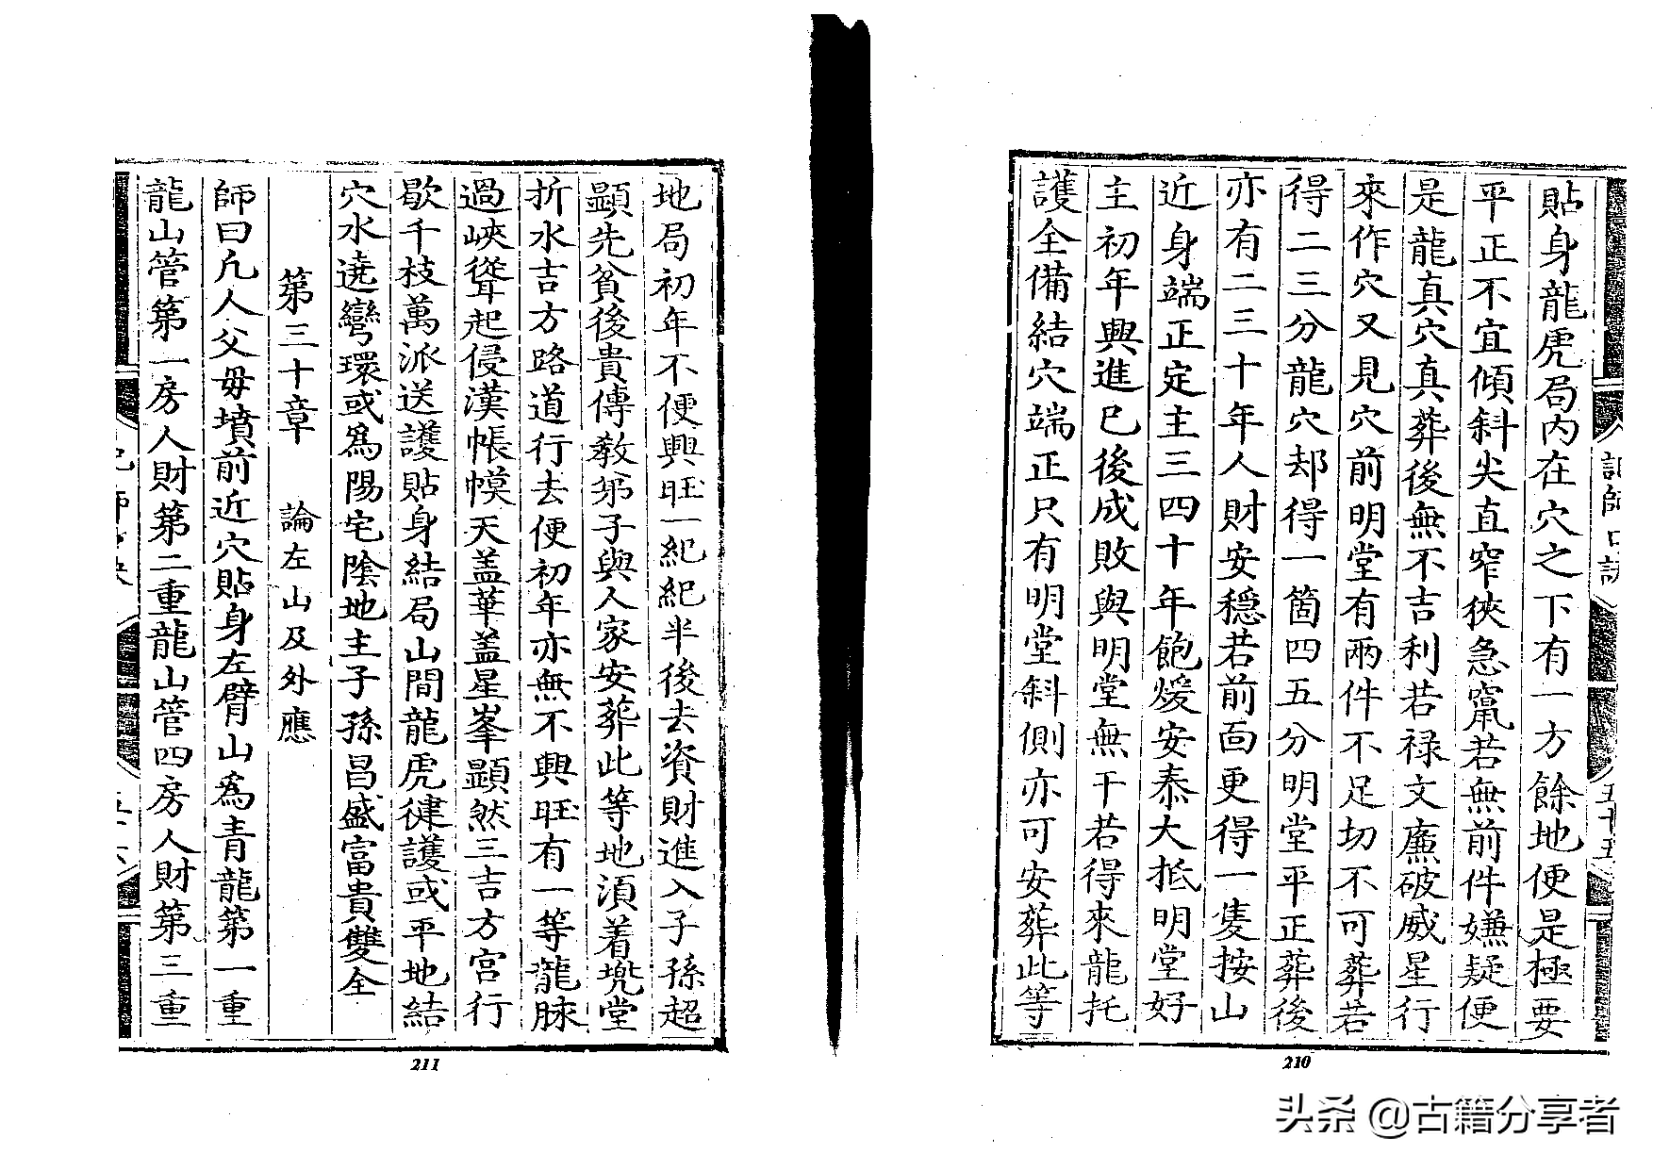 貼身龍虎局內在穴之下有一方餘地便是極要
平正不宜傾斜尖直窄狹急竄若無前件嫌疑便
是龍真穴真葬後無不吉利若祿文廉破威星行
來作穴又見穴前明堂有兩件不足切不可葬若
得二三分龍穴却得一箇四五分明堂平正葬後
亦有二三十年人財安穩若前面更得一隻按山
近身端正定主三四十年飽煖安泰大抵明堂好
主初年興進已後成敗與明堂無干若得來龍托
護全備結穴端正只有明堂斜側亦可安葬此等
五十五
210
地局初年不便興旺一紀紀半後去資財進入子孫超
顯先貧後貴傳教弟子與人家安葬此等地須着兠堂
折水吉方路道行去便初年亦無不興旺有一等龍脉
過峽聳起侵漢帳幙天盖華盖星峯顯然三吉方宮行
歇千枝萬派送護貼身結局山間龍虎徤護或平地結
穴水遶彎環或為陽宅隂地主子孫昌盛富貴雙全
第三十章 論左山及外應
師曰凡人父毋墳前近穴貼身左臂山為青龍第一重
龍山管第一房人財第二重龍山管四房人財第三重
211
头条 @古籍分享者